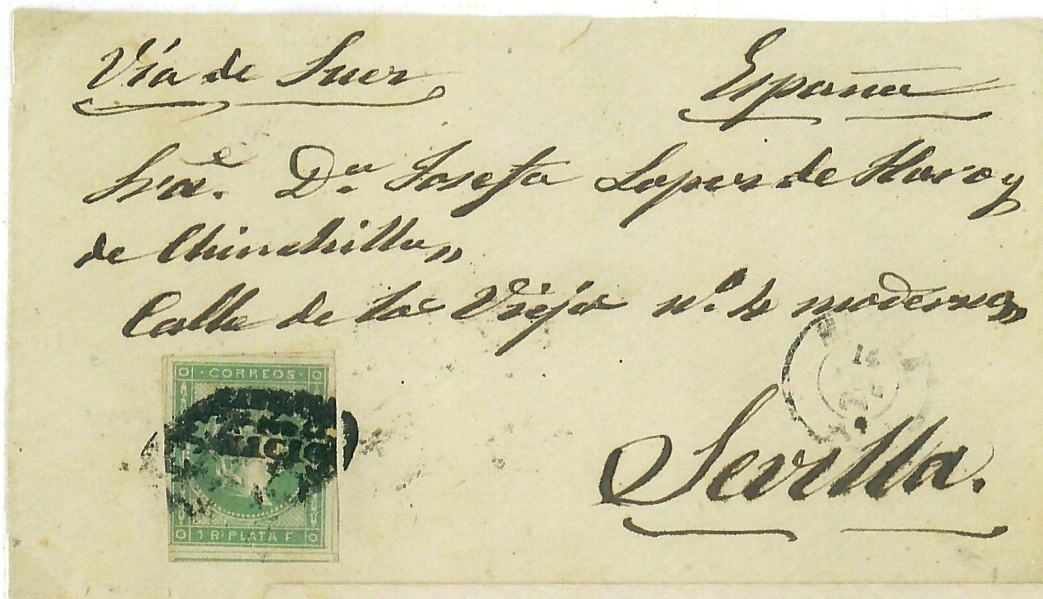 Vía de Suez España
Sra. Dª Josefa Lopez de Haro y
de Chinchilla,,
Calle de la Vieja nº 4 moderno,,
14
Sevilla.
CORREOS
1 Rl PLATA F.